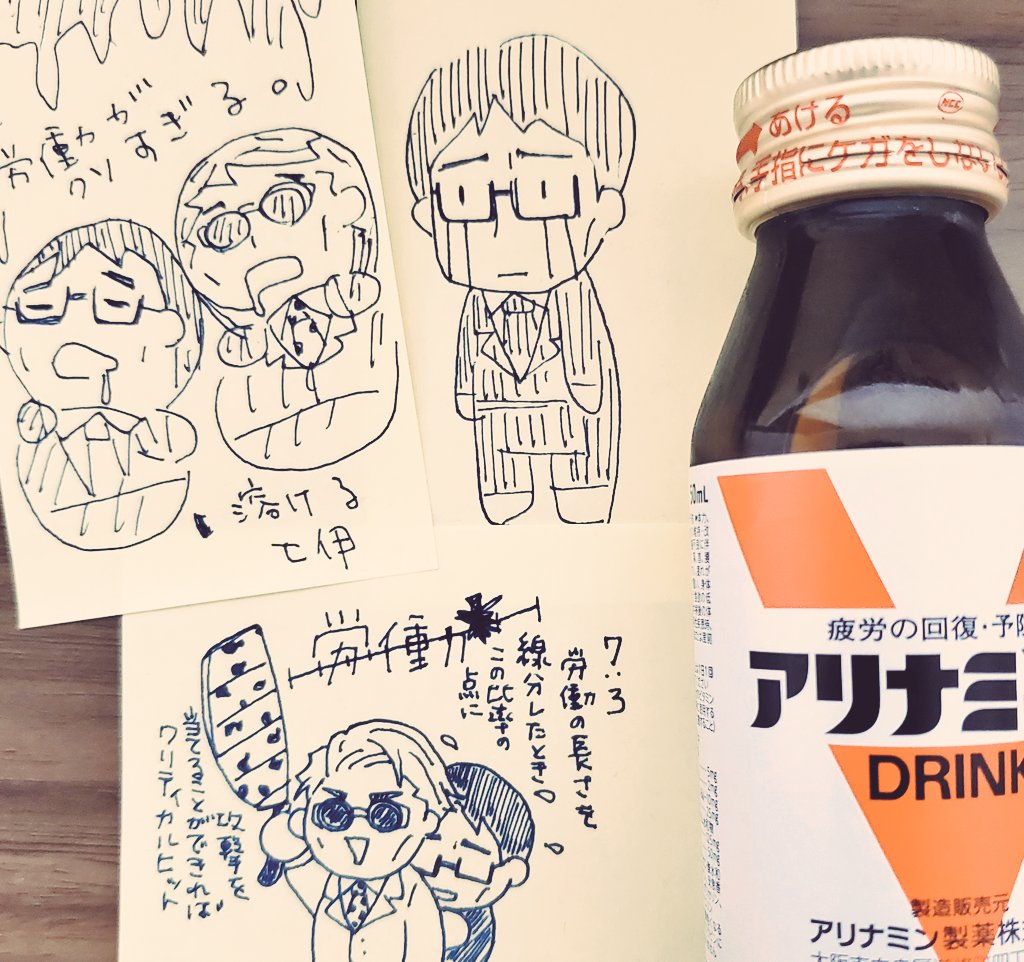 労働力が
クソすぎる。
溶ける
七伊
労働力
7:3
労働の長さを
線分したとき。
この比率の
点に
攻撃を
当てることができれば
クリティカルヒット
あける
NCC
手指にケガをしない
50mL
疲労の回復・予
アリナミ
DRINK
製造販売元
アリナミン製薬株